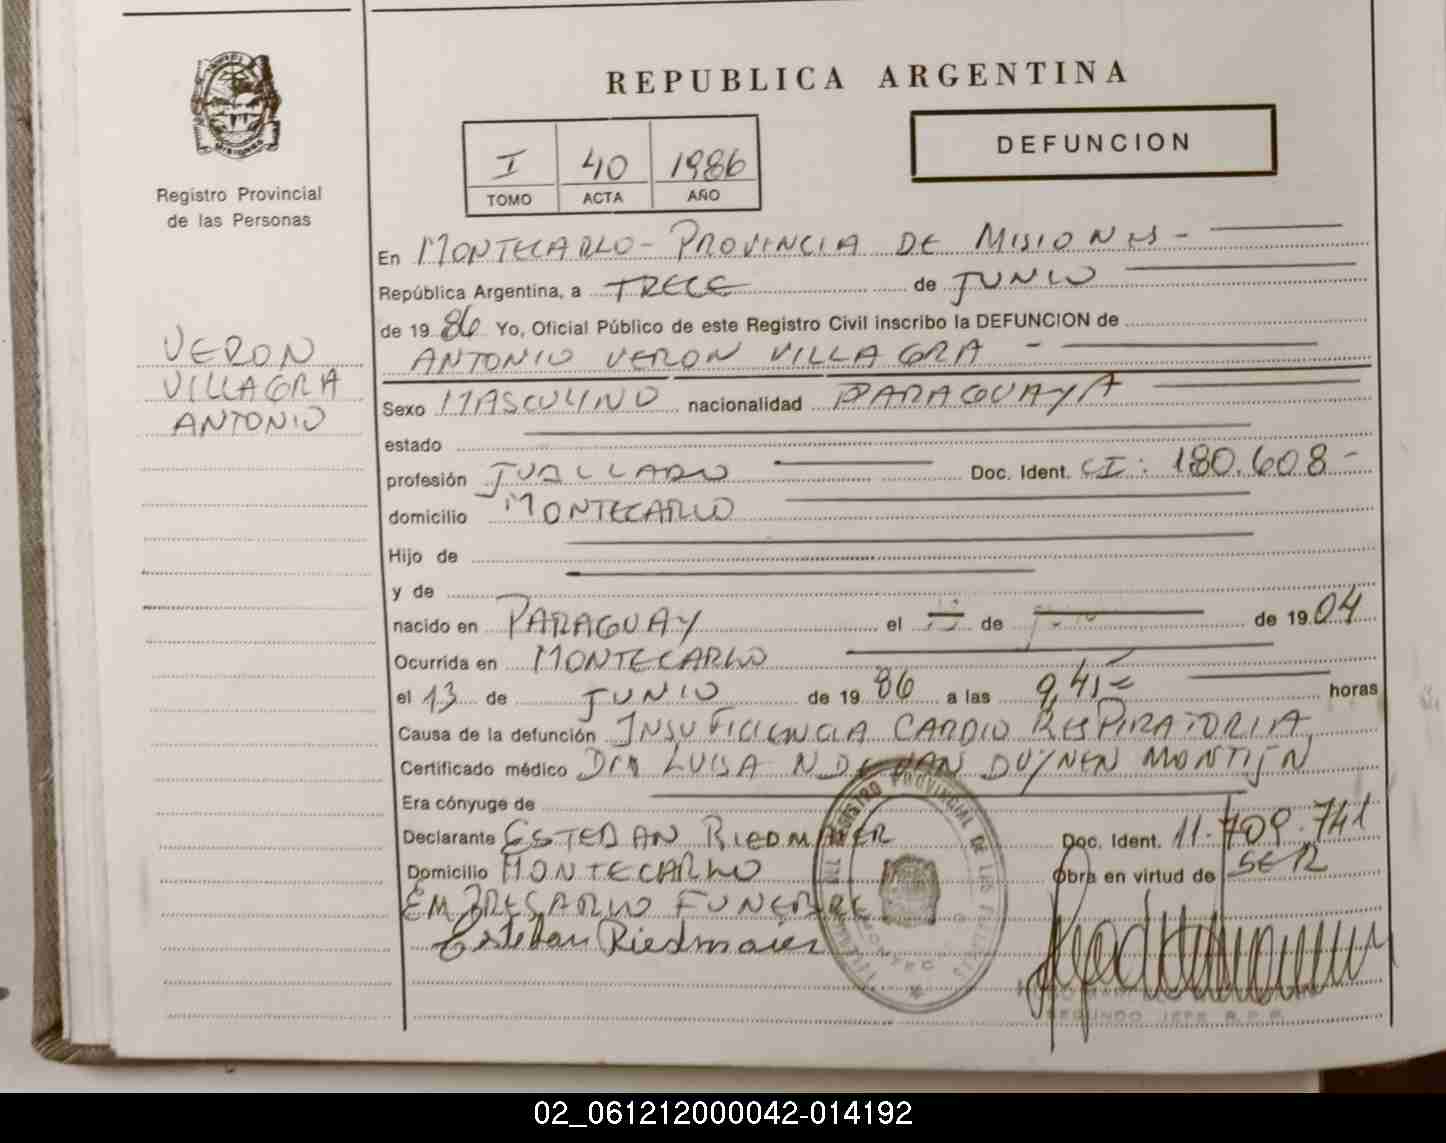 REPUBLICA ARGENTINA
DEFUNCION
I 40 1986
TOMO ACTA AÑO
Registro Provincial
de las Personas
VERON
VILLAGRA
ANTONIO
En MONTECARLO - PROVINCIA DE MISIONES -
República Argentina, a TRECE de JUNIO
de 1986 Yo, Oficial Público de este Registro Civil inscribo la DEFUNCION de
ANTONIO VERON VILLAGRA -
Sexo MASCULINO nacionalidad PARAGUAYA
estado
profesión JUBILADO Doc. Ident. CI: 180.608-
domicilio MONTECARLO
Hijo de
y de
nacido en PARAGUAY el de de 1904
Ocurrida en MONTECARLO
el 13 de JUNIO de 1986 a las 9,45 horas
Causa de la defunción INSUFICIENCIA CARDIO RESPIRATORIA
Certificado médico DRA LUISA N DE VAN DUYNEN MONTIJN
Era cónyuge de
Declarante ESTEBAN RIEDMAIER Doc. Ident. 11.709.741
Domicilio MONTECARLO Obra en virtud de SER
EMPRESARIO FUNEBRE
Esteban Riedmaier
REGISTRO PROVINCIAL DE LAS PERSONAS
SEGUNDO JEFE R.P.P.
02_061212000042-014192